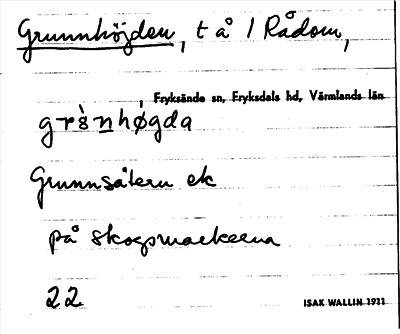 Grunnhöjden, t å 1 Rådom,
Fryksände sn, Fryksdals hd, Värmlands län
Grunnsätern ek
på skogsmarkerna
22
ISAK WALLIN 1911